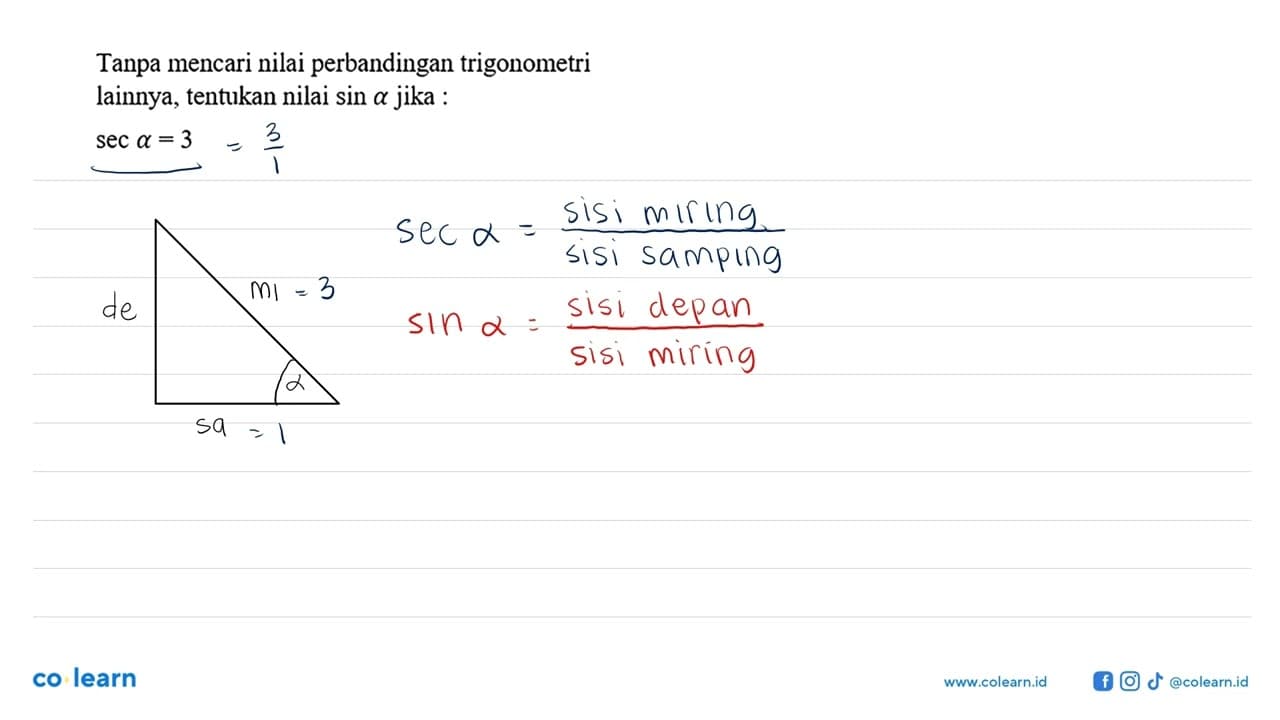 Tanpa mencari nilai perbandingan trigonometri
lainnya, tentukan nilai sin α jika :
sec α = 3 = 3/1
sec α = sisi miring / sisi samping
mi = 3
de
sin α = sisi depan / sisi miring
α
sa = 1
co learn
www.colearn.id
@colearn.id